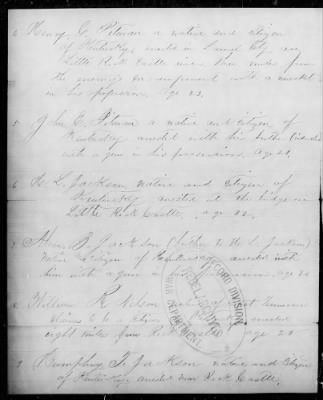 4 Henry C. Pitman a native and citizen
of Kentucky, arrested in Laurel Cty near
Little Rock Castle nine miles from
the enemy's encampment with a musket
in his possession. Age 23.
5 John C. Pitman a native and citizen of
Kentucky arrested with his brother
with a gun in his possession. Age 21.
6 H. L. Jackson, native and citizen of
Kentucky arrested at the bridge on
Little Rock Castle. age 22.
7 J. Jackson (father to H. L. Jackson)
native & citizen of Kentucky arrested with
him with a gun in his possession. age
8 William R. Nelson native of East Tennessee
citizen arrested
eight miles from Rock Castle age 20
9 Pumphrey T. Jackson native and citizen
of Kentucky arrested near Rock Castle.
RECORD DIVISION
REBEL